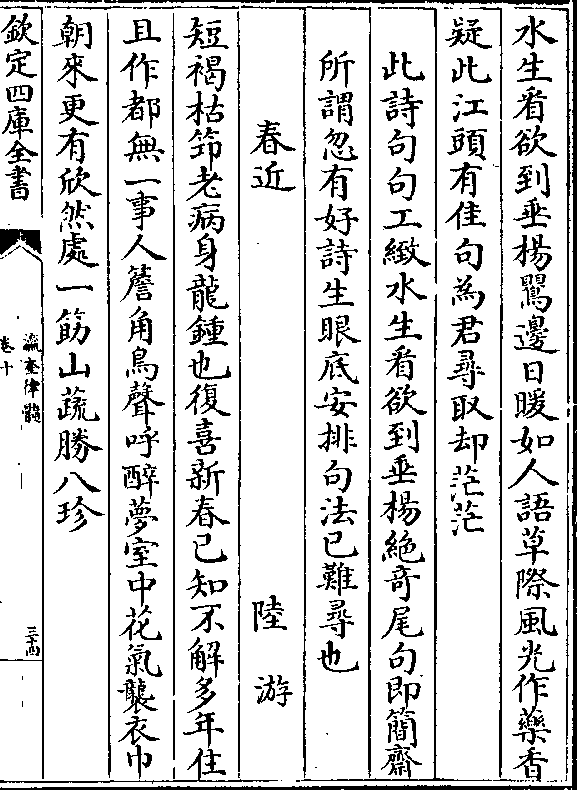 水生看欲到垂楊鸎邊日暖如人語草際風光作藥香
疑此江頭有佳句為君尋取却茫茫
此詩句句工緻水生看欲到垂楊絶竒尾句即簡齋
所謂忽有好詩生眼底安排句法已難尋也
春近 陸游
短褐枯筇老病身龍鍾也復喜新春已知不解多年住
且作都無一事人簷角鳥聲呼醉夢室中花氣襲衣巾
朝來更有欣然處一筯山蔬勝八珍
欽定四庫全書
瀛奎律髓
卷十
三十四